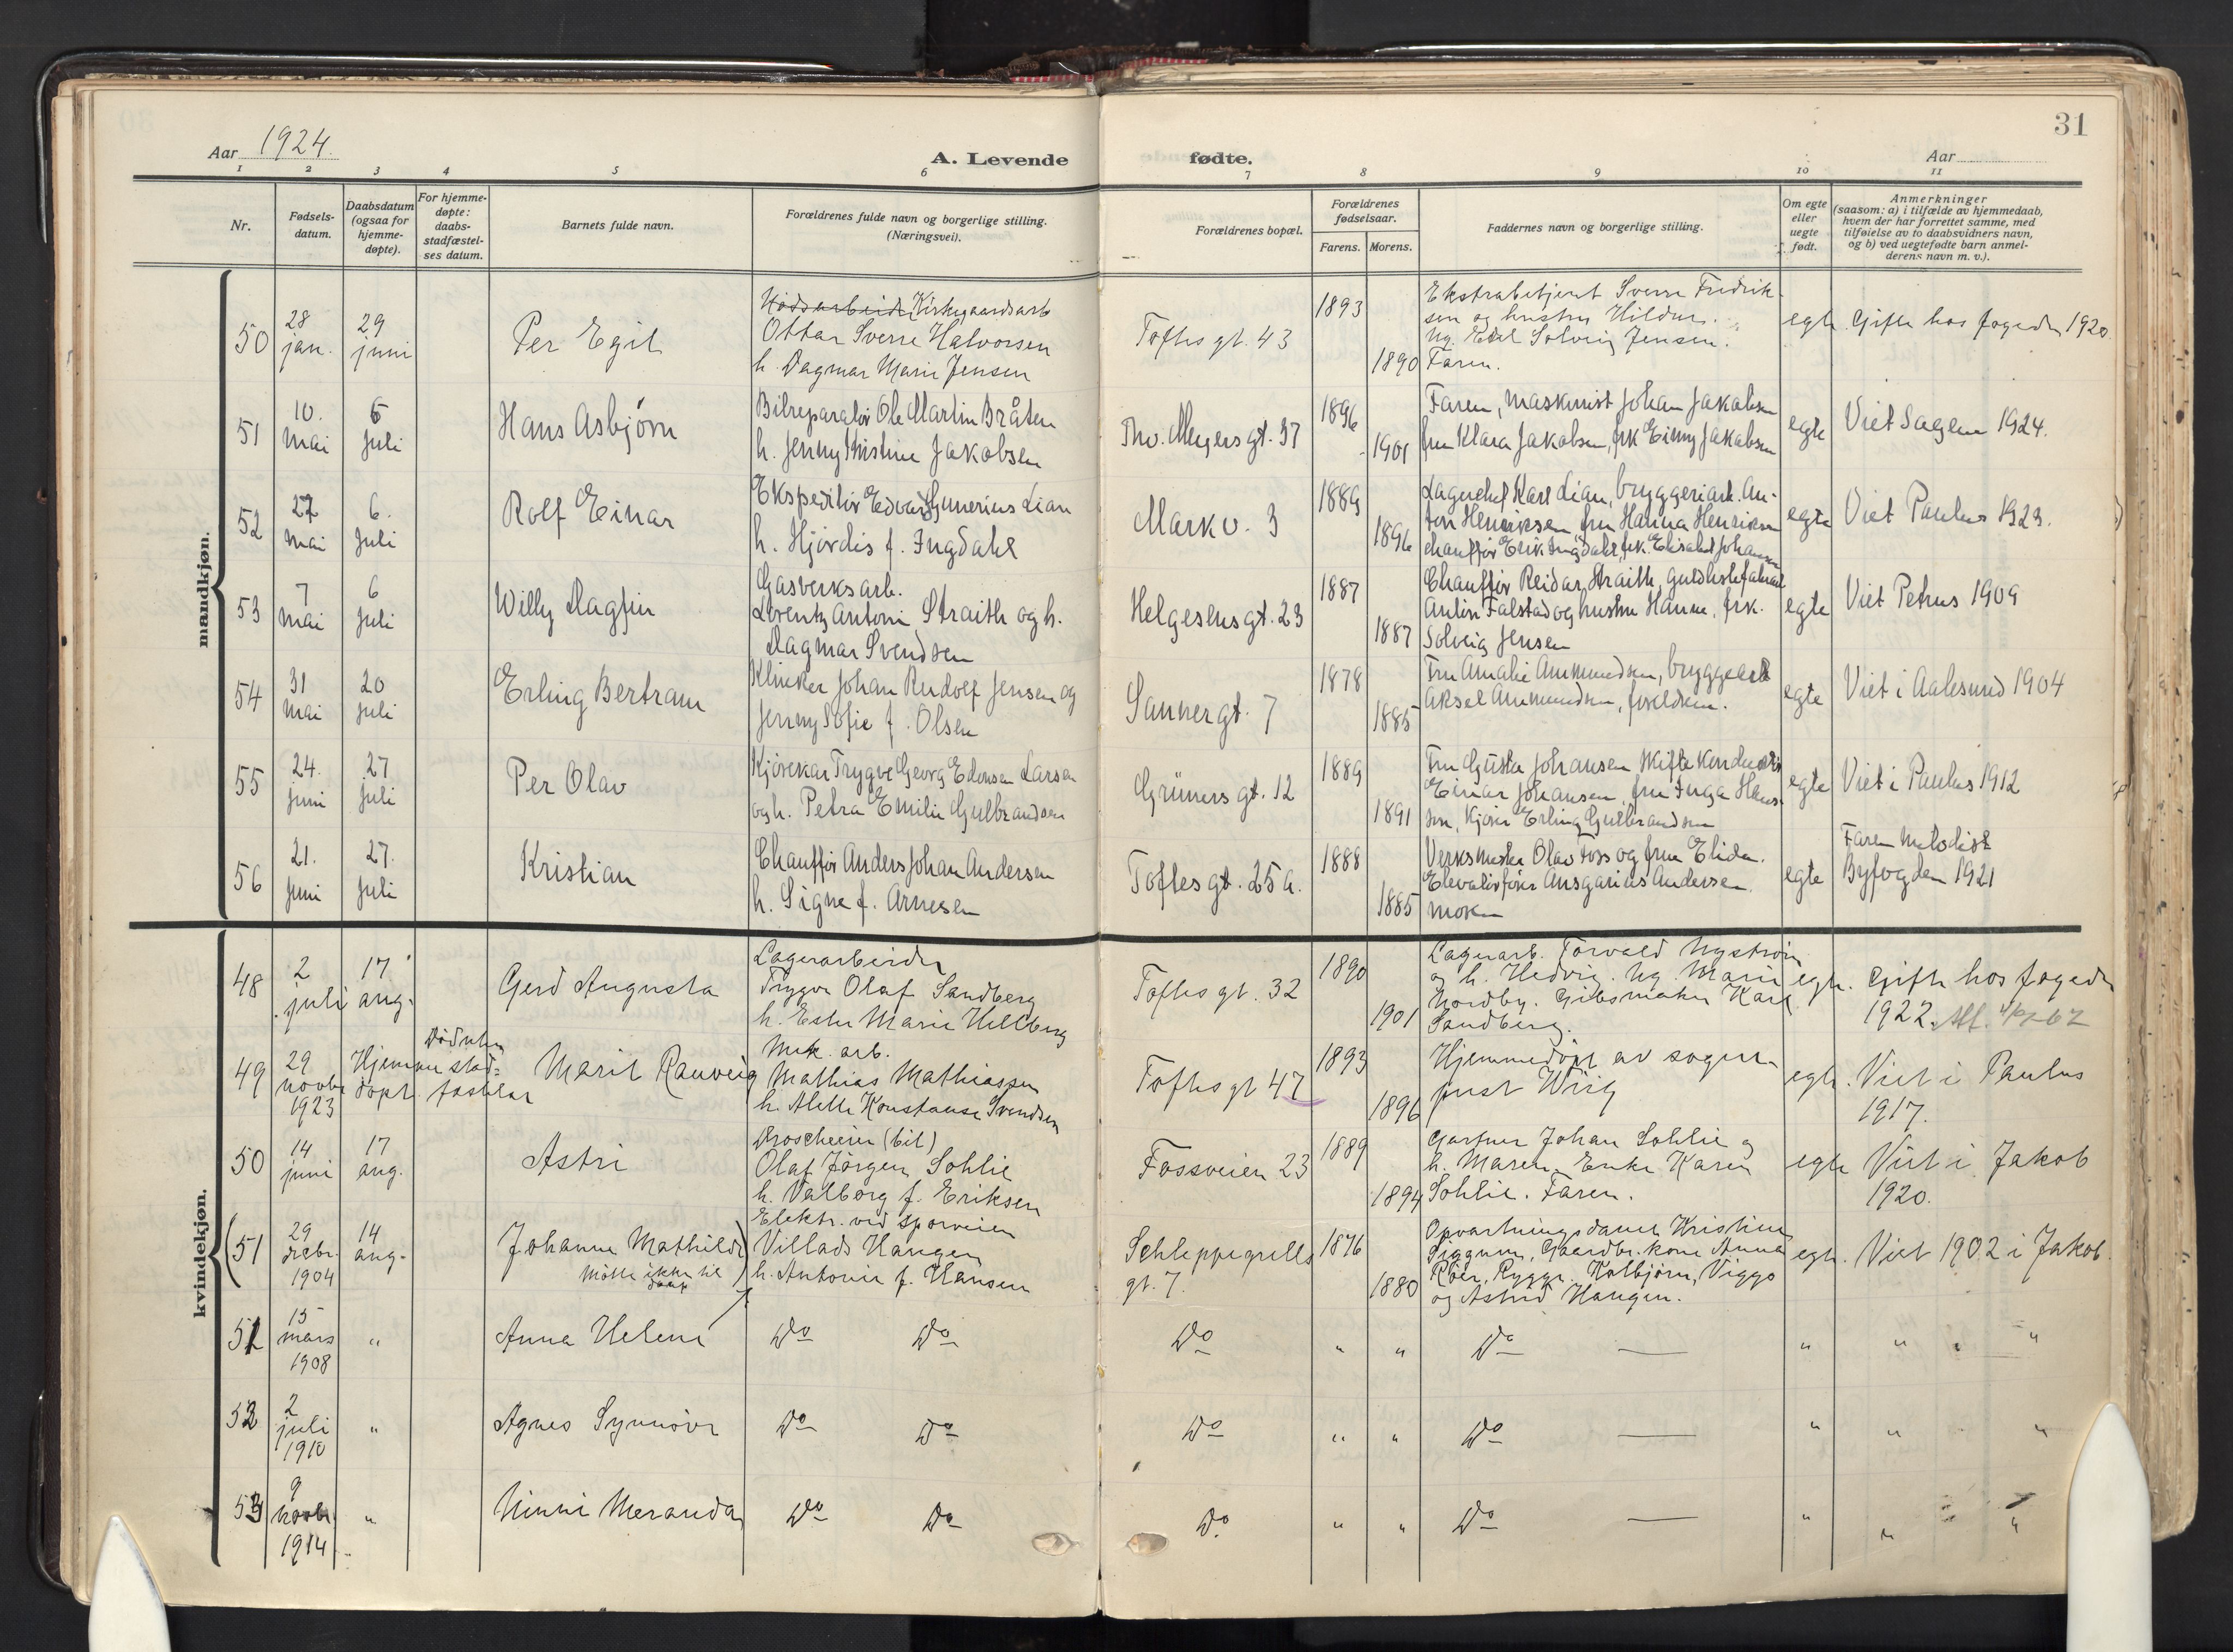 31
Aar 1924.
A. Levende fødte.
Aar
1 2 3 4 5 6 7 8 9 10 11
Nr.
Fødsels-
datum.
Daabsdatum
(ogsaa for
hjemme-
døpte).
For hjemme-
døpte:
daabs-
stadfæstel-
ses datum.
Barnets fulde navn.
Forældrenes fulde navn og borgerlige stilling.
(Næringsvei).
Forældrenes bopæl.
Forældrenes
fødselsaar.
Farens. Morens.
Faddernes navn og borgerlige stilling.
Om egte
eller
uegte
født.
Anmerkninger
(saasom: a) i tilfælde av hjemmedaab,
hvem der har forrettet samme, med
tilføielse av to daabsvidners navn,
og b) ved uegtefødte barn anmel-
derens navn m. v.).
mandkjøn.
50
28
jan.
29
juni
Per Egil
Kirkegaardsarb
Ottar Sverre Halvorsen
h. Dagmar Marie Jensen
Toftes gt. 43
1893
1890
Ekstrabetjent Sverre Fredrik-
sen og hustru Hildur.
Ug. Edel Solveig Jensen.
Faren.
egte.
Gifte hos fogden 1920.
51
10.
mai
6
juli
Hans Asbjørn
Bilreparatør Ole Martin Bråten
h. Jenny Kristine Jakobsen
Thv. Meyers gt. 37
1896
1901
Faren, maskinist Johan Jakobsen
fru Klara Jakobsen, frk Jakobsen
egte
Viet Sagene 1924.
52
27
mai
6.
juli
Rolf Einar
Ekspeditør Edvard Gunerius Lian
h. Hjørdis f. Ingdahl
Markv. 3
1889
1896
Lagerchef Karl Lian, bryggeriarb. An-
ton Henriksen, fru Hanna Henriksen
chauffør Erik Ingdahl, frk. Elisabet Johansen
egte
Viet Paulus 1923.
53
7
mai
6
juli
Willy Dagfin
Gasverksarb.
Lorentz Antoni Straith og h.
Dagmar Svendsen
Helgesens gt. 23
1887
1887
Chauffør Reidar Straith,
Anton Falstad og hustru Hanna, frk.
Solveig Jensen
egte
Viet Petrus 1909
54
31
mai
20
juli
Erling Bertram
Klinker Johan Rudolf Jensen og
Jenny Sofie f. Olsen
Sannergt. 7
1878
1885
Fru Amalie Ammundsen, bryggearb
Aksel Ammundsen, foreldrene.
egte
Viet i Aalesund 1904
55
24.
juni
27
juli
Per Olav
Trygve Georg Edensen Larsen
og h. Petra Emilie Gulbrandsen
Grüners gt. 12
1889
1891
Fru Gusta Johansen
Einar Johansen, fru Inga Han-
sen, Erling Gulbrandsen
egte
Viet i Paulus 1912
56
21.
juni
27.
juli
Kristian
Chauffør Anders Johan Andersen
h. Signe f. Arnesen
Toftes gt. 25 a.
1888
1885
Verksmester Olav Foss og frue Elida.
Elevatorfører Ansgarius Andersen.
moren
egte
Faren metodist
Byfogden 1921
kvindekjøn.
48
2
juli
17
aug.
Gerd Augusta
Lagerarbeider
Trygve Olaf Sandberg
h. Ester Marie Hellberg
Toftes gt. 32
1890
1901
Lagerarb. Torvald Nystrøm
og h. Hedvig. Ug. Marie
Nordby. Gibsmaker Karl
Sandberg.
egte.
Gifte hos fogden
1922.
49
29
novbr
1923
Hjemme
døpt.
Død uten
stad-
fæstelse
Marit Rauveig
Mek. arb.
Mathias Mathiassen
h. Alette Konstanse Svendsen
Toftes gt 47
1893
1896
Hjemmedøpt av sogne-
prest Wisig
egte.
Viet i Paulus
1917.
50
14
juni
17
aug.
Astri
Droscheeier (bil)
Olaf Jørgen Sohlie
h. Valborg f. Eriksen
Fossveien 23
1889
1894
Gartner Johan Sohlie og
h. Maren. Enke Karen
Sohlie. Faren.
egte
Viet i Jakob
1920.
(51
29
decbr.
1904
14
aug.
Johanne Mathilde)
Møtte ikke til daap
Elektr. ved sporveien
Villads Haugen
h. Antonie f. Hansen
Schleppegrells
gt. 7.
1876
1880
Opvartningsdame Kristine
Siggum, Gaardbr. kone Anna
Röer, Rygge. Kolbjørn, Viggo
og Astrid Haugen.
egte.
Viet 1902 i Jakob.
51
15
mars
1908
"
Anna Helene
Do Do
Do
" "
Do —
"
" " "
52
2
juli
1910
"
Agnes Synnøve
Do Do
Do
" "
Do —
"
" "
53
9
novbr.
1914
"
Ninni Meranda
Do Do
Do
" "
Do —
"
" "